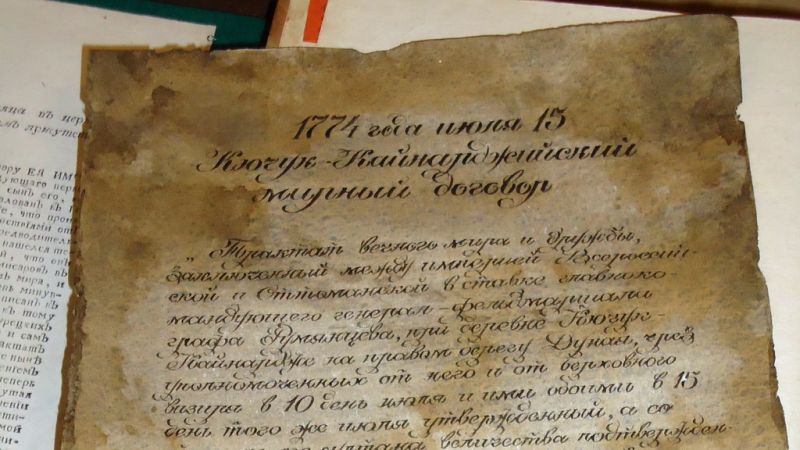 1774 года июля 15
Кючук-Кайнарджийский
мирный договор
„Трактат вечного мира и дружбы,
заключенный между империей Всероссий-
ской и Оттоманской в ставке главноко-
мандующего генерал-фельдмаршала
графа Румянцева, при деревне Кючук-
Кайнардже на правом берегу Дуная, чрез
уполномоченных от него и от верховного
визиря в 10 день июля и ими обоими в 15
день того же июля утвержденный, а со
султана величества подтвержден-
въ цер
ЕЯ ИМ
сынъ его,
что прои
что онъ
мира, и
къ тому
и самъ